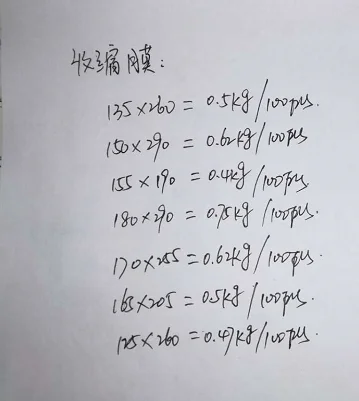 收缩膜:
135×260 = 0.5kg/100pcs.
150×290 = 0.62kg/100pcs.
155×190 = 0.4kg/100pcs.
180×290 = 0.75kg/100pcs.
170×255 = 0.62kg/100pcs.
165×205 = 0.5kg/100pcs.
125×260 = 0.47kg/100pcs.